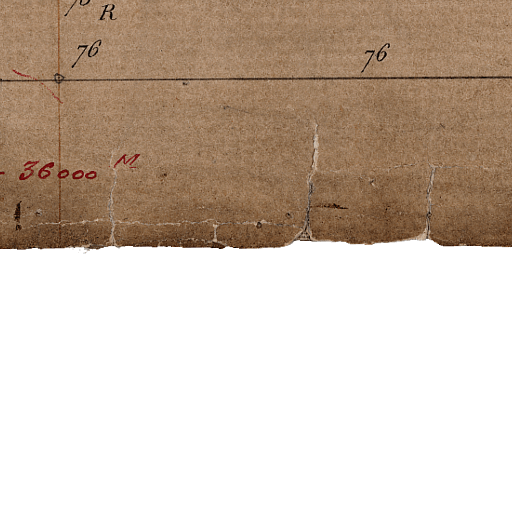 R
76
76
36000 M